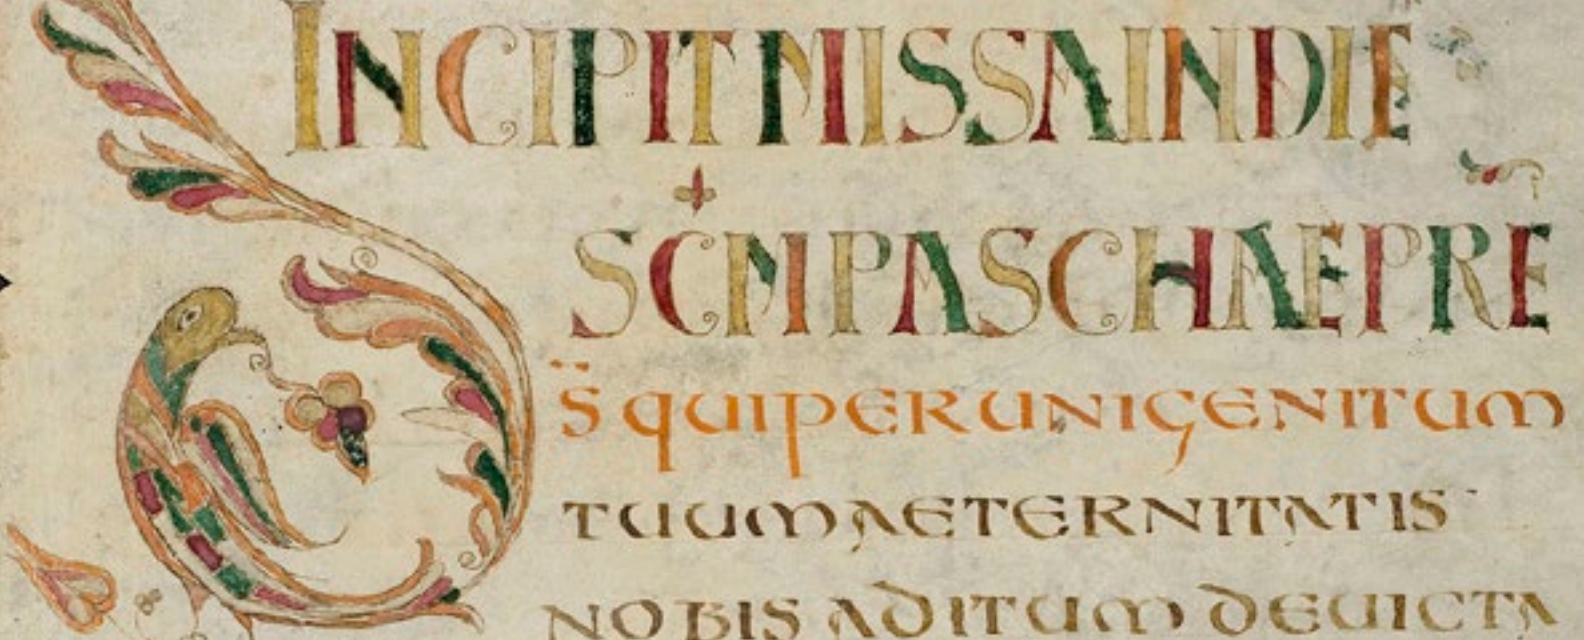 INCIPITMISSAINDIE
SC̄MPASCHAEPRĒ
DS̄ QUIPERUNIGENITUM
TUUMAETERNITATIS
NOBIS ADITUM DEUICTA